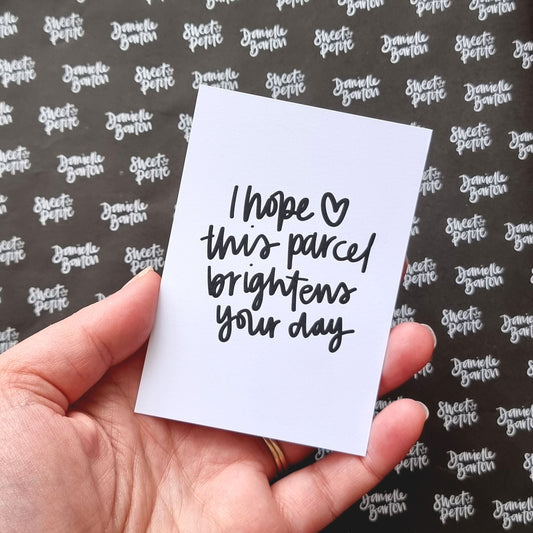 I hope
this parcel
brightens
your day
Danielle
Barton
Sweet
Petite